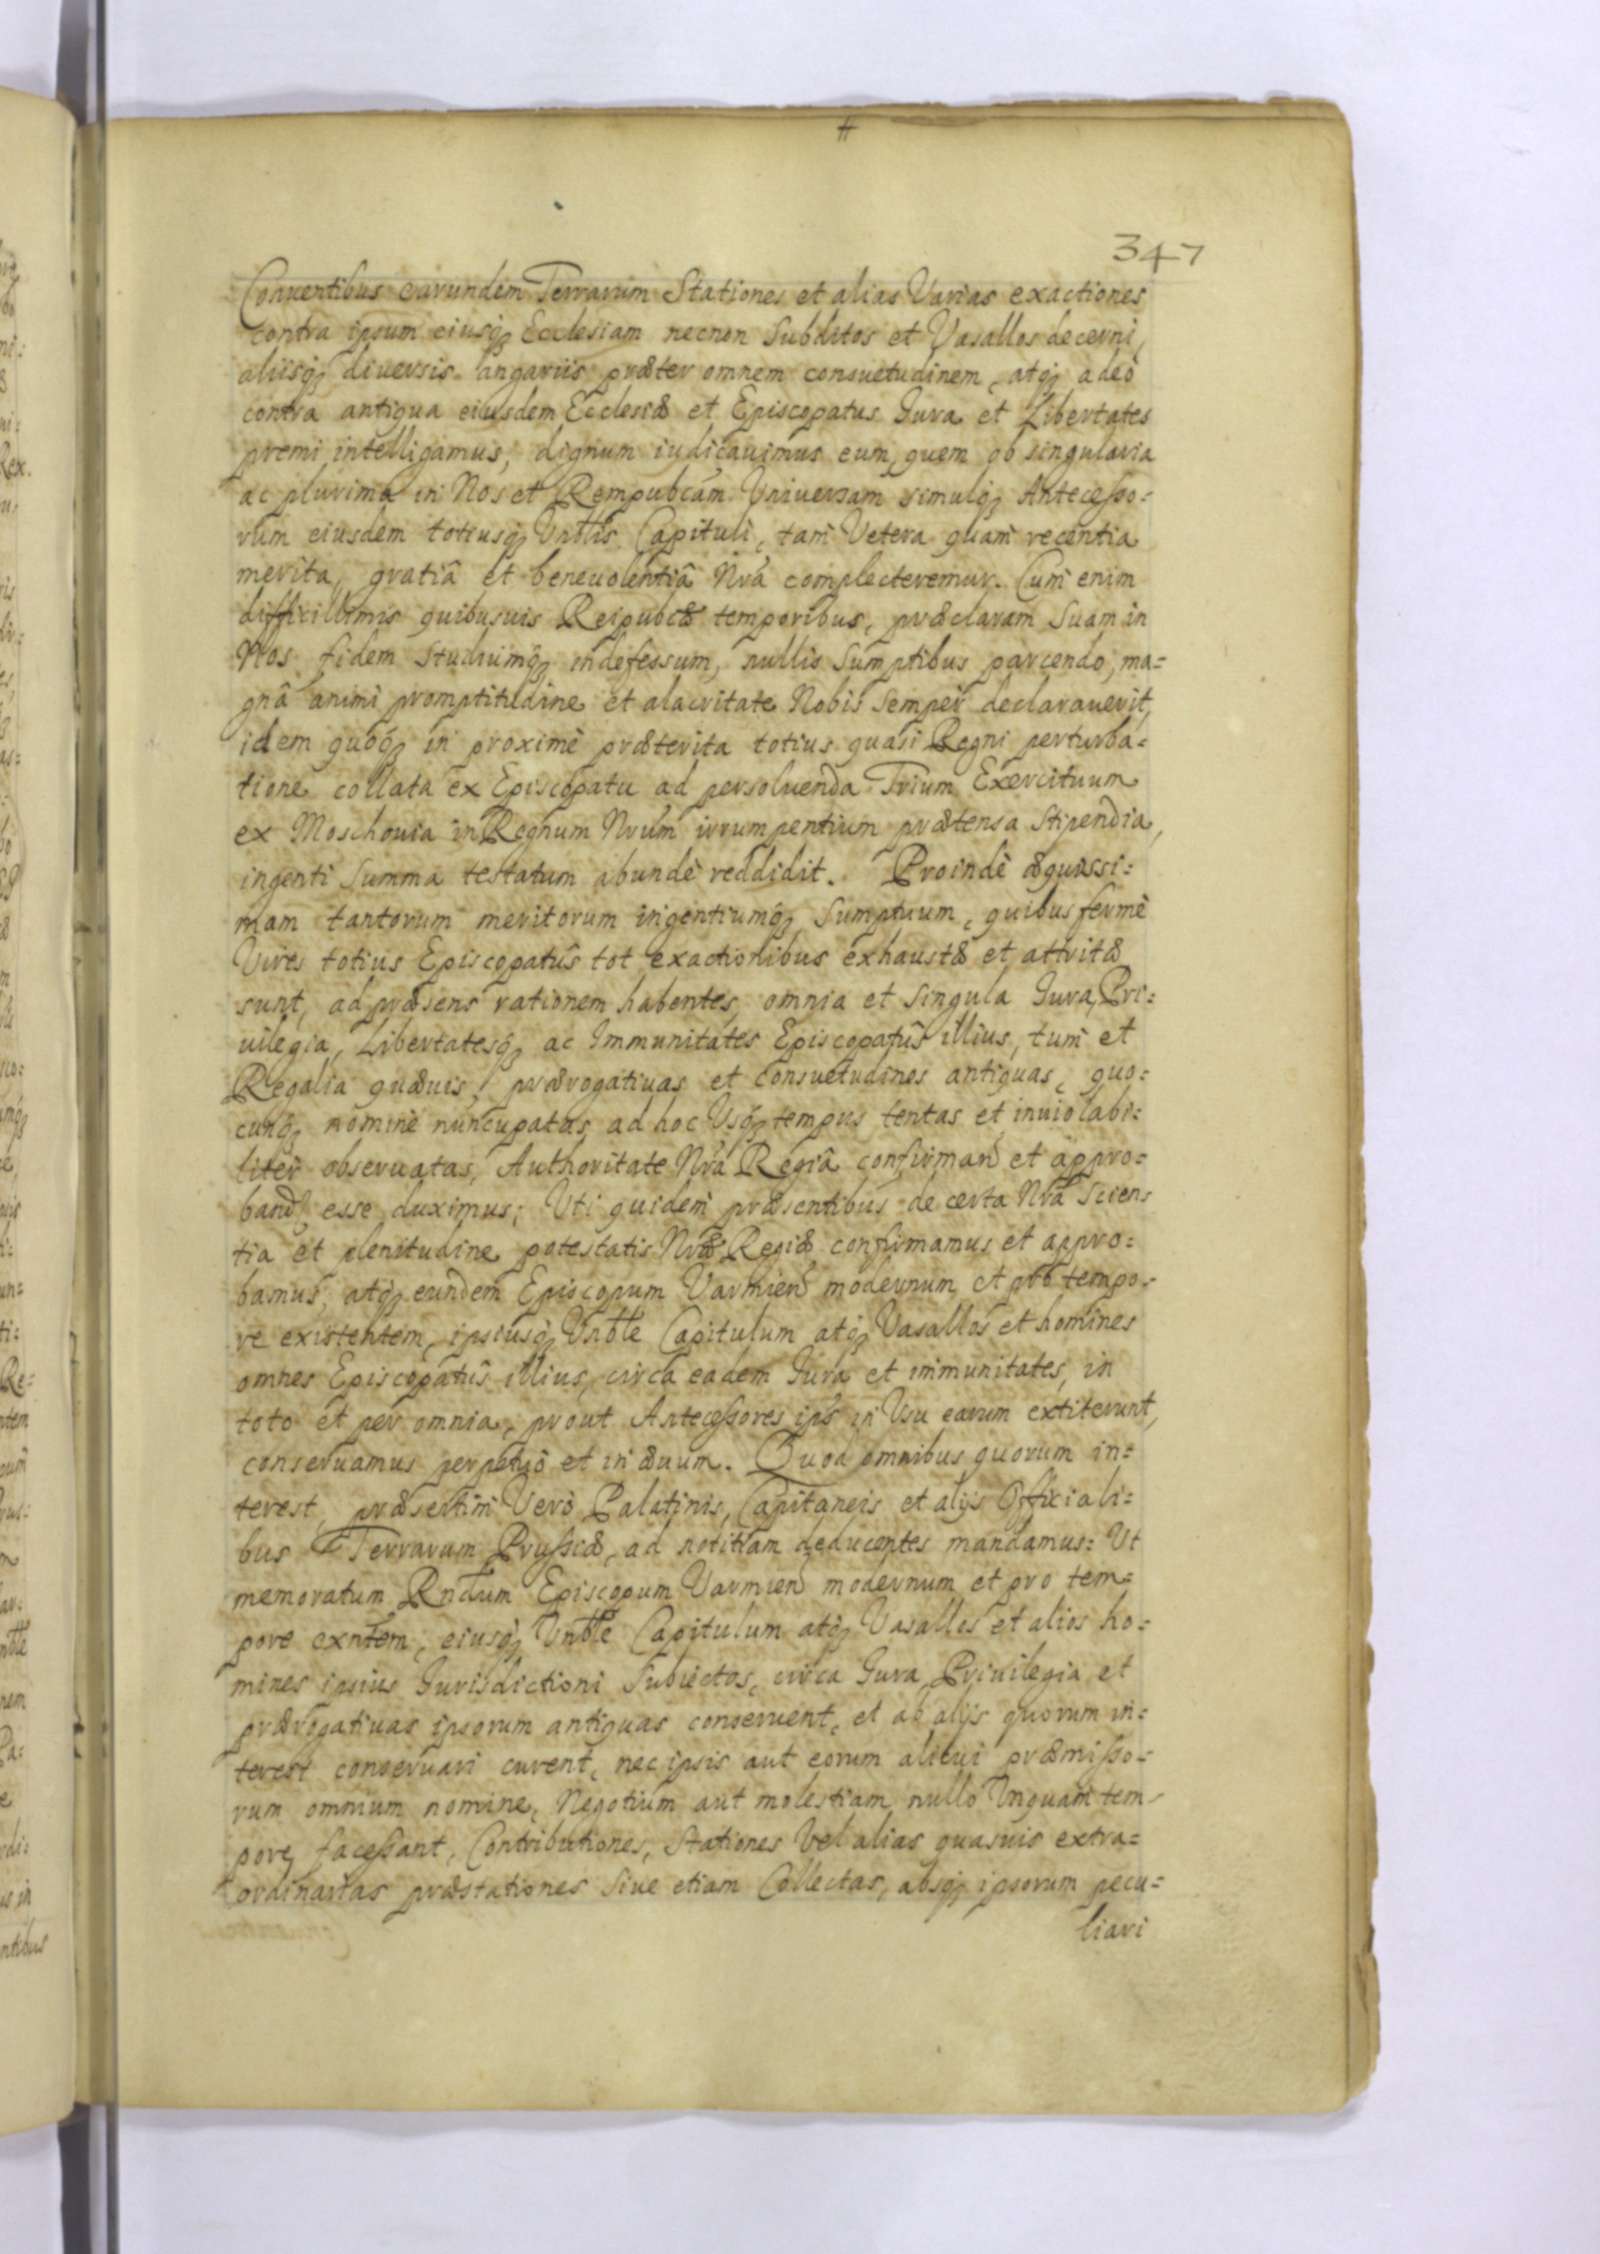 #
347
Conuentibus earundem Terrarum Stationes et alias Varias exactiones
contra ipsum eiusq́ꝫ Ecclesiam necnon Subditos et Vasallos decerni,
aliisq́ꝫ diuersis angariis præter omnem consuetudinem, atq́ꝫ adeò
contra antiqua eiusdem Ecclesiæ et Episcopatus Iura et Libertates
premi intelligamus, dignum iudicauimus eum, quem ob singularia
ac plurima in Nos et Rempubcam Vniuersam simulq́ꝫ Antecesso=
rum eiusdem totiusq́ꝫ Vnblis Capituli, tam Vetera quam recentia
merita, gratiâ et beneuolentiâ Nrâ complecteremur. Cum enim
difficillimis quibusuis Reipubcæ temporibus, præclaram Suam in
Nos fidem studiumq́ꝫ indefessum, nullis Sumptibus parcendo, ma=
gnâ animi promptitudine et alacritate Nobis Semper declarauerit,
idem quoq́ꝫ in proximè præterita totius quasi Regni perturba=
tione collata ex Episcopatu ad persoluenda Trium Exercituum
ex Moschouia in Regnum Nrum irrumpentium prætensa Stipendia,
ingenti Summa testatum abundè reddidit. Proindè æquissi=
mam tantorum meritorum ingentiumq́ꝫ Sumptuum, quibus fermè
Vires totius Episcopatûs tot exactionibus exhaustæ et attritæ
sunt, ad præsens rationem habentes, omnia et Singula Iura, Pri=
uilegia, Libertatesq́ꝫ ac Immunitates Episcopatûs illius, tum et
Regalia quæuis, prærogatiuas et consuetudines antiquas, quo=
cunq́ꝫ nominè nuncupatas, ad hoc Vsq́ꝫ tempus tentas et inuiolabi=
liter obseruatas, Authoritate Nrâ Regiâ confirmand et appro=
band esse duximus; Vti quidem præsentibus de certa Nrâ Scien=
tia et plenitudine potestatis Nræ Regiæ confirmamus et appro=
bamus, atq́ꝫ eundem Episcopum Varmien modernum et pro tempo=
re existentem, ipsiusq́ꝫ Vnble Capitulum atq́ꝫ Vasallos et homines
omnes Episcopatûs illius, circa eadem Iura et immunitates, in
toto et per omnia, prout Antecessores ips in Vsu earum extiterunt,
conseruamus perpetuò et in æuum. Quod omnibus quorum in=
terest, præsertim Verò Palatinis, Capitaneis et alijs Officiali=
bus Terrarum Prussiæ, ad notitiam deducentes mandamus: Vt
memoratum Rndum Episcopum Varmien modernum et pro tem=
pore exntem, eiusq́ꝫ Vnble Capitulum atq́ꝫ Vasallos et alios ho=
mines ipsius Iurisdictioni Subiectos, circa Iura, Priuilegia et
prærogatiuas ipsorum antiquas conseruent, et ab alijs quorum in=
terest conseruari curent, nec ipsis aut eorum alicui præmisso=
rum omnium nomine, Negotium aut molestiam nullo Vnquam tem=
pore facessant, Contributiones, Stationes Vel alias quasuis extra=
ordinarias præstationes Siue etiam Collectas, absq́ꝫ ipsorum pecu=
liari